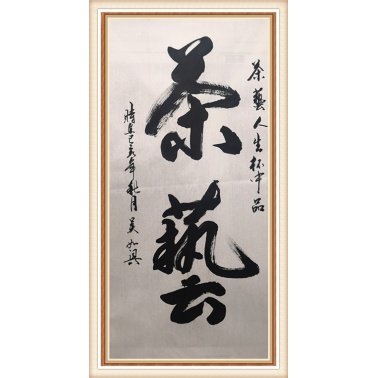 茶藝人生杯中品
茶藝
時在己亥年秋月吴